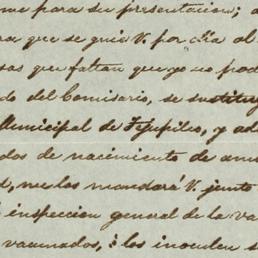 me para su presentacion; a
ra que se guie V. por dia al
sas que faltan que yo no pod
do del Comisario, se sustituy
Municipal de Tejupilco, y ad
dos de nacimiento de am
d, me los mandará V. junto
inspeccion general de la va
vacunados, i los inoculen s